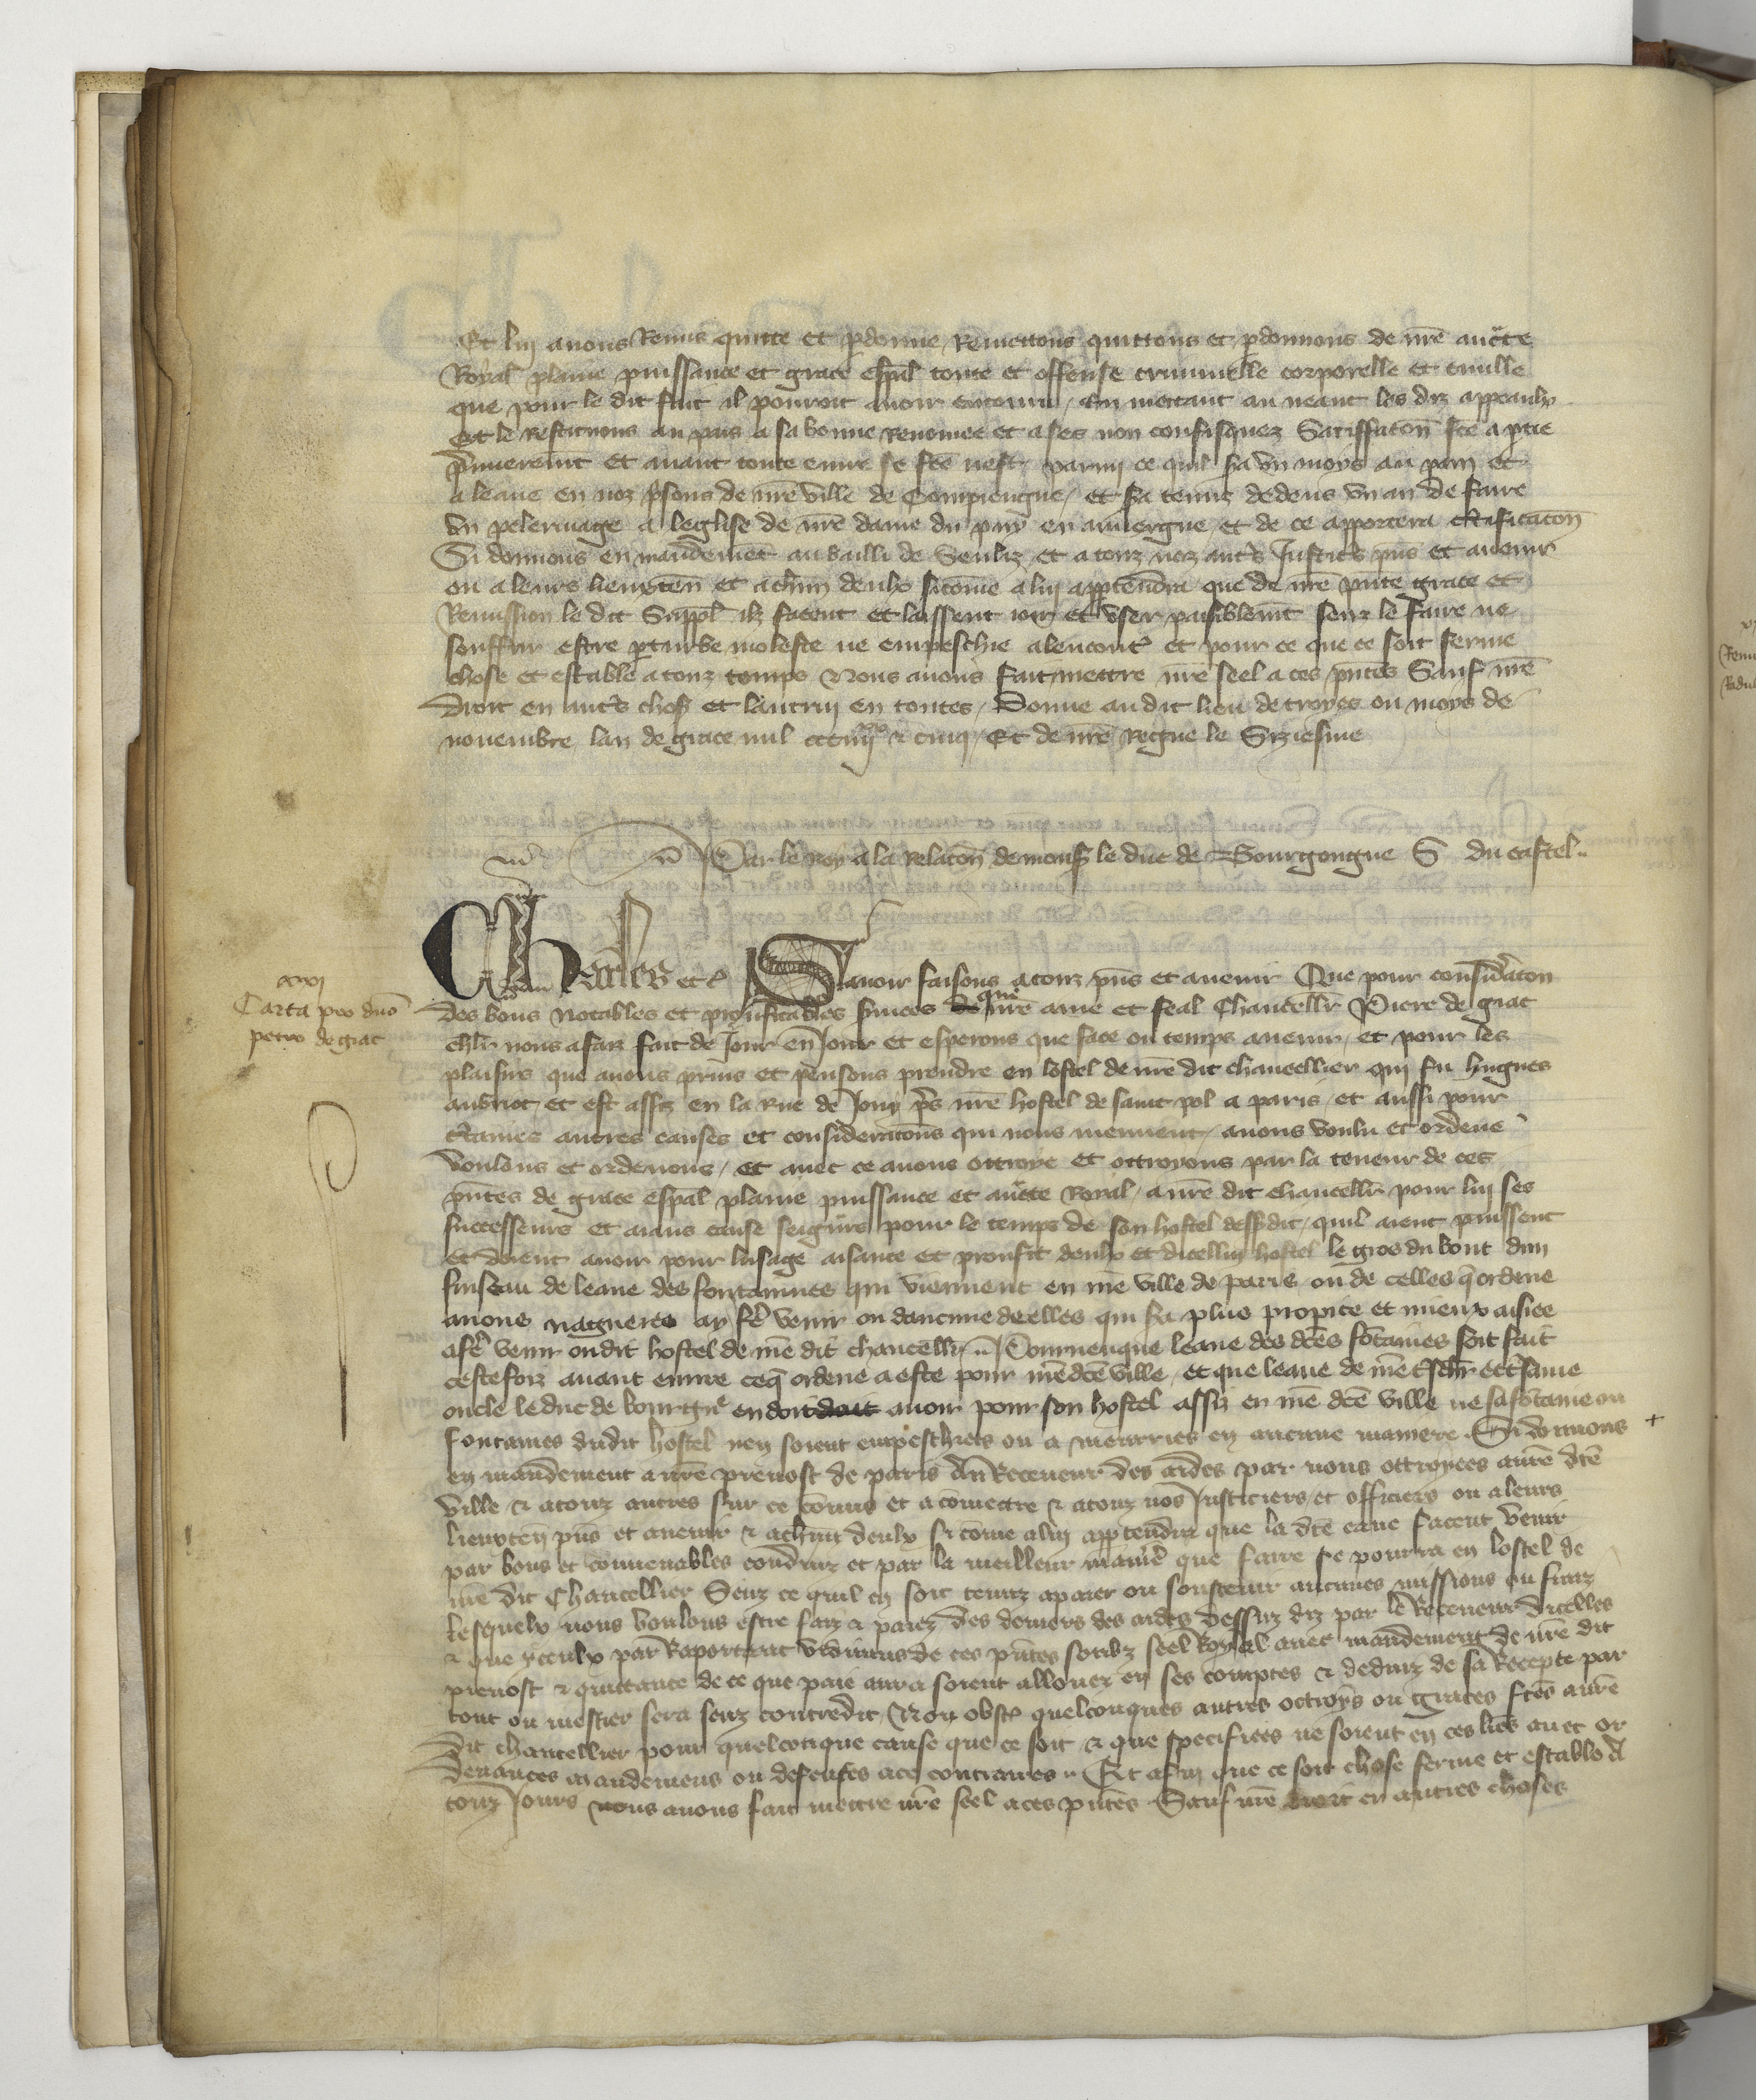 Et lui avons Remis quitte et pdonne, Remettons quittons et pdonnons de nre aucte
Royal plaine puissance et grace espal toute et offense criminelle corporelle et civille
que pour le dit fait il pouroit avoir encouru, En mettant au neant les diz appeaulx
Et le restituons au pais a sa bonne Renomee et a ses non confisquez Satisffaton fce a ptie
pmierement et avant toute euvre se fce nest, parmi ce quil sa un moys au pain et
a leaue en noz psons de nre ville de Compiengne, et sa tenuz dedens un an de faire
Un pelerinage a leglise de nre dame du puy en auvergne et de ce apportera ctificaton
Si donnons en mandement au bailli de Senliz et a touz noz autres Justic's pns et avenir
ou a leurs lieuxten et a chun deulx sicome a lui apptendra que de nre pnte grace et
Remission le dit Suppl ilz facent et laissent ioir et user paisiblemt senz le faire ne
souffrir estre pturbe moleste ne empeschie alencontr et pour ce que ce soit ferme
chose et estable a touz temps Nous avons fait mettre nre seel a ces pntes Sauf nre
droit en autrs choses et lautrui en toutes, Donne au dit lieu de troyes ou moys de
novembre lan de grace mil ccciiijxx & cinq, Et de nre Regne le Siziesme
Par le Roy a la Relaton de mons le duc de Bourgongne S du castel
Charles etc Savoir faisons a touz pns et avenir Que pour considraton
xxvj
Carta pro dno
petro de giac
des bons notables et prouffitables svices que nre ame et feal Chancellr Pierre de giac
chlr nous a faiz fait de Jour en Jour et esperons que face ou temps avenir, et pour les
plaisirs que avons prins et pensons prendre en lostel de nre dit chancellier qui fu hugues
aubriot, et est assiz en la Rue de Jouy ps nre hostel de saint pol a paris, et aussi pour
ctaines autres causes et consideratons qui nous meuvent, avons voulu et ordene
Voulons et ordenons, et avec ce avons ottroye et ottroyons par la teneur de ces
pntes de grace espal plaine puissance et aucte Royal, a nre dit chancellr pour lui ses
successeurs et aians cause seigurs pour le temps de son hostel dessdit, quil aient puissent
et doient avoir pour lusage aisance et proufit deulx et dicellui hostel le gros du bout dun
fuiseau de leaue des fontainnes qui viennent en nre ville de paris, ou de celles q ordene
avons nagueres ay fe venir ou daucune dicelles qui sa plus propice et mieux aisiee
a fe venir oudit hostel de nre dit chancellr, Pourveuque leaue des dces fotaines soit fait
cestefoiz avant euvre ceq ordene a este pour nredce ville, et que leaue de nre tscher et tsame
oncle leduc de bourgne en doit doit avoir pour son hostel assiz en nre dce ville ne safotaine ou
fontaines dudit hostel nen soient empeschiees ou amenrries en aucune maniere. Si donnons
en mandement a nre prevost de paris Au Receveur des aides par nous ottroyees a nre dce
ville & a touz autres sur ce comis et a comettre & a touz nos Justiciers et officiers ou a leurs
lieuxten pns et avenir & a chun deulx si come a lui apptendra que la dce eaue facent venir
par bons et convenables conduiz et par la meilleur manie que faire se pourra en lostel de
nre dit Chancellier Senz ce quil en soit tenuz apaier ou soustenir aucunes missions ou fraiz
Lesquelx nous voulons estre faiz & paiez des deniers des aides dessuz diz par le Receveur dicelles
& que yceulx par Raportant vidimus de ces pntes soubz seel Royal avec mandement de nre dit
prevost & quittance de ce que paie aura soient allouez en ses comptes & deduiz de sa Recepte par
tout ou mestier sera senz contredit, Non obst quelconques autres octroys ou graces fces a nre
dit chancellier pour quelconque cause que ce soit & que specifiees ne soient en ces lres avec or
denances mandemens ou defenses a ce contraires. Et afin que ce soit chose ferme et estable a
touz Jours nous avons fait mettre nre seel a ces pntes. Sauf nre droit en autres choses